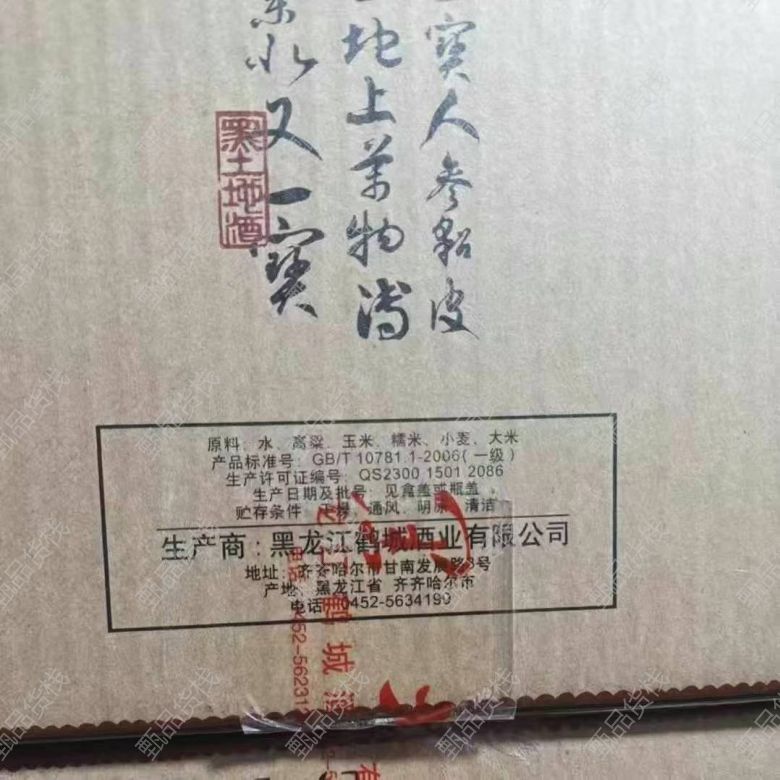 宝人参貂皮
地上万物湾
水又一宝
黑土地酒
原料：水、高粱、玉米、糯米、小麦、大米
产品标准号：GB/T 10781.1-2006(一级)
生产许可证编号：QS2300 1501 2086
生产日期及批号：见盒盖或瓶盖
贮存条件：干燥、通风、阴凉、清洁
生产商：黑龙江鹤城酒业有限公司
地址：齐齐哈尔市甘南发展路3号
产地：黑龙江省 齐齐哈尔市
电话：0452-5634190
鹤城酒
0452-56231
有
甄品货栈